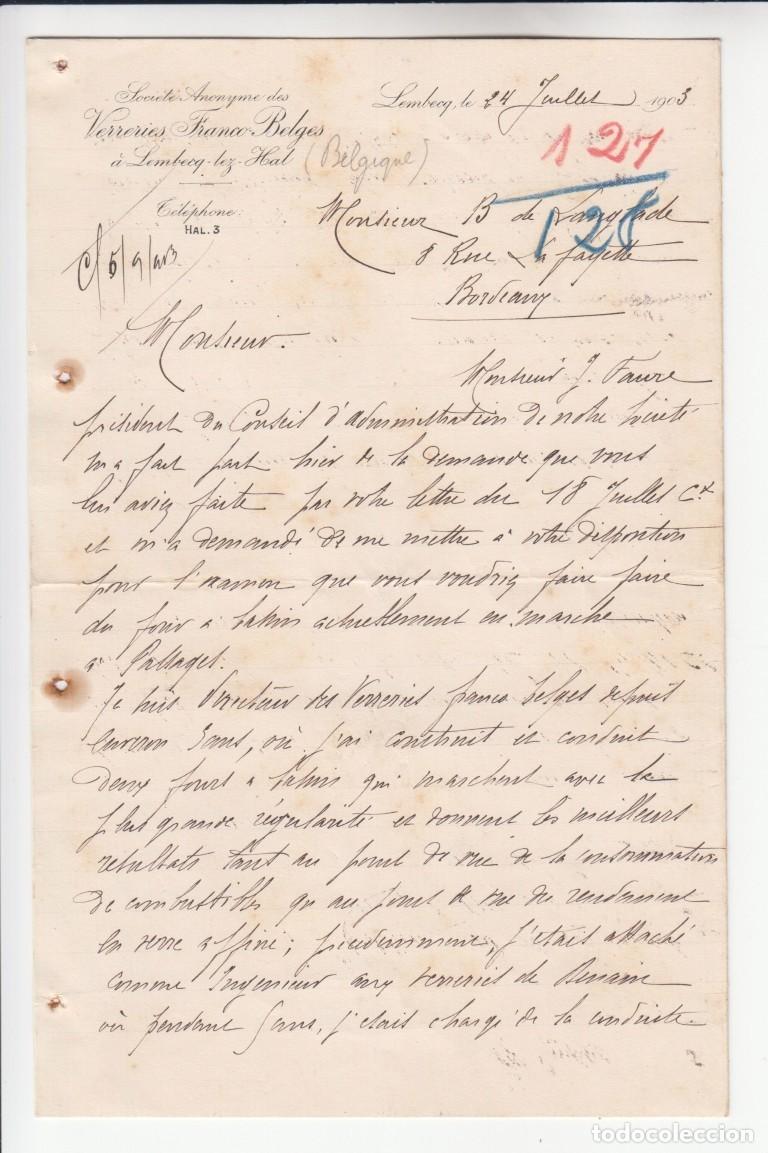 Société Anonyme des
Verreries Franco-Belges
à Lembecq-lez-Hal (Belgique)
Téléphone:
HAL. 3
Lembecq, le 24 Juillet 1903
127
128
Monsieur B de Langlade
8 Rue Lafayette
Bordeaux
Monsieur.
Monsieur J. Faure
président du Conseil d'administration de notre Société
m'a fait part hier de la demande que vous
lui aviez faite par votre lettre du 18 Juillet Ct
et m'a demandé de me mettre à votre disposition
pour l'examen que vous voudriez faire faire
du four à bassin actuellement en marche
à
Je suis Directeur des Verreries franco belges depuis
environ 3 ans, où j'ai construit et conduit
deux fours à bassin qui marchent avec la
plus grande régularité et donnent les meilleurs
résultats tant au point de vue de la consommation
de combustibles qu'au point de vue du rendement
en verre affiné; précédemment, j'étais attaché
comme Ingénieur aux verreries de
où pendant 5 ans, j'étais chargé de la conduite
todocoleccion